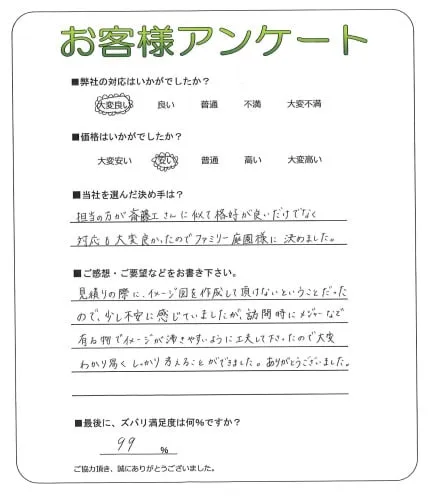 お客様アンケート
■弊社の対応はいかがでしたか?
大変良い 良い 普通 不満 大変不満
■価格はいかがでしたか?
大変安い 安い 普通 高い 大変高い
■当社を選んだ決め手は?
担当の方が斎藤工さんに似て格好が良いだけでなく
対応も大変良かったのでファミリー庭園様に決めました。
■ご感想・ご要望などをお書き下さい。
見積りの際に、イメージ図を作成して頂けないということだった
ので、少し不安に感じていましたが、訪問時にメジャーなど
有る物でイメージが沸きやすいように工夫して下さったので大変
わかり易くしっかり考えることができました。ありがとうございました。
■最後に、ズバリ満足度は何%ですか?
99 %
ご協力頂き、誠にありがとうございました。